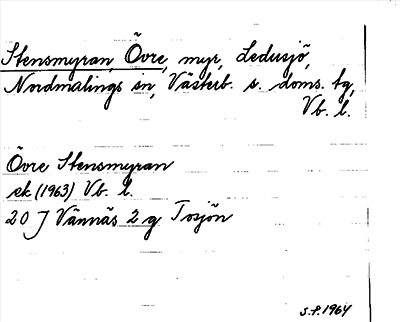 Stensmyran, Övre, myr, Ledusjö,
Nordmalings sn, Västerb. s. doms. tg,
Vb. l.
Övre Stensmyran
ek (1963) Vb. l.
20 J Vännäs 2 g Tosjön
S.P. 1964